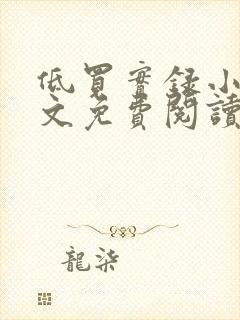 低買實錄小
文免費閱讀
龍柒